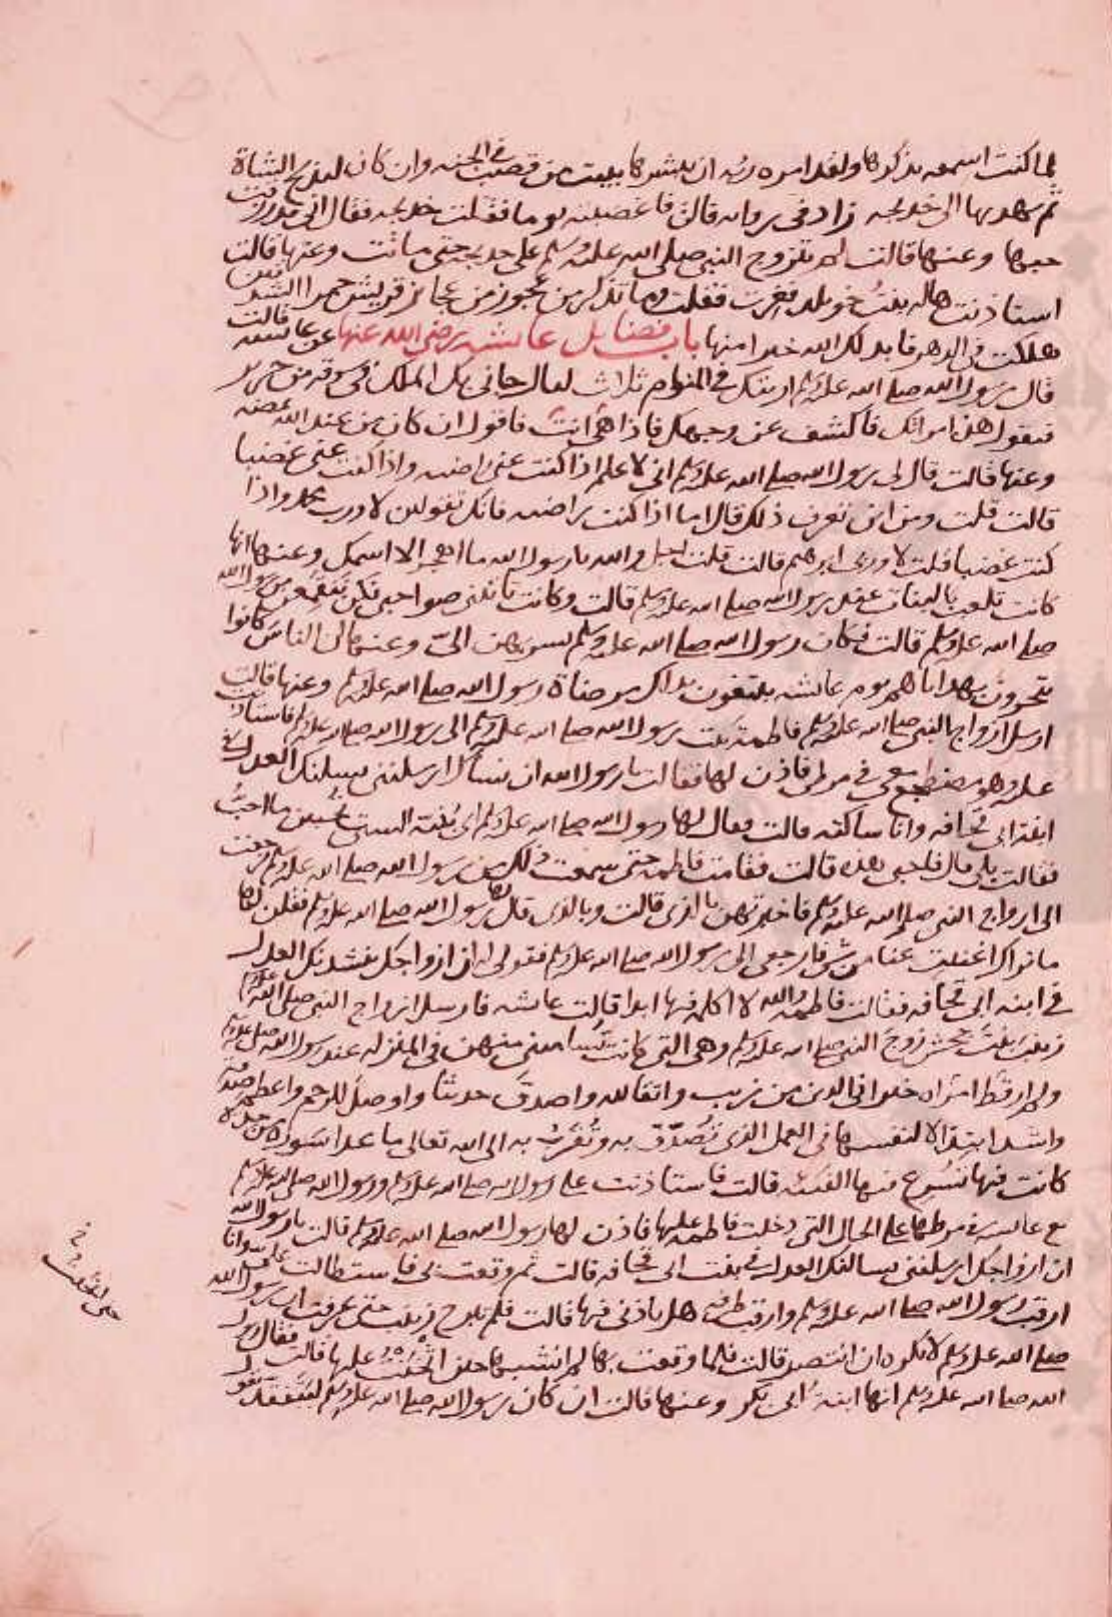 لما كنت اسمعه يذكرها ولقد امره ربه ان يبشرها ببيت من قصب في الجنة وان كان ليذبح الشاة
ثم يهديها الى خديجه زاد في روايه قالت فاغضبته يوما فقلت خديجه فقال اني قد رزقت
حبها وعنها قالت لم يتزوج النبي صلى الله عليه وسلم على خديجة حتى ماتت وعنها قالت
استاذنت هاله بنت خويلد فغرت فقلت وما تذكر من عجوز من عجائز قريش حمرا الشدقين
هلكت في الدهر فابدلك الله خيرا منها باب فضايل عائشه رضي الله عنها عن عائشه قالت
قال رسول الله صلى الله عليه وسلم اريتك في المنام ثلاث ليال جاني بك الملك في سرقه من حرير
فيقول هذه امراتك فاكشف عن وجهك فاذا هي انت فاقول ان كان من عند الله يمضه
وعنها قالت قال لي رسول الله صلى الله عليه وسلم اني لاعلم اذا كنت عني راضيه واذا كنت عني غضبا
قالت قلت ومن اين تعرف ذلك قال اما اذا كنت راضيه فانك تقولين لا ورب محمد واذا
كنت غضبا قلت لا ورب ابرهيم قالت قلت اجل والله يا رسول الله ما اهجر الا اسمك وعنها انها
كانت تلعب بالبنات عند رسول الله صلى الله عليه وسلم قالت وكانت تاتيني صواحبي فكن ينقمعن من رسول الله
صلى الله عليه وسلم قالت فكان رسول الله صلى الله عليه وسلم يسربهن الي وعنها ان الناس كانوا
يتحرون بهداياهم يوم عائشه يبتغون بذلك مرضاة رسول الله صلى الله عليه وسلم وعنها قالت
ارسل ازواج النبي صلى الله عليه وسلم فاطمة بنت رسول الله صلى الله عليه وسلم الى رسول الله صلى الله عليه وسلم فاستاذنت
عليه وهو مضطجع معي في مرطي فاذن لها فقالت يا رسول الله ان نساك ارسلنني يسلنك العدل في
ابنة ابي قحافه وانا ساكته قالت فقال لها رسول الله صلى الله عليه وسلم اي بنية الست تحبين ما احب
فقالت بلى قال فاحبي هذه قالت فقامت فاطمة حين سمعت ذلك من رسول الله صلى الله عليه وسلم فرجعت
الى ازواج النبي صلى الله عليه وسلم فاخبرتهن بالذي قالت وبالذي قال لها رسول الله صلى الله عليه وسلم فقلن لها
ما نراك اغنيت عنا من شي فارجعي الى رسول الله صلى الله عليه وسلم فقولي له ان ازواجك ينشدنك العدل
في ابنه ابي قحافه فقالت فاطمة والله لا اكلمه فيها ابدا قالت عائشه فارسل ازواج النبي صلى الله عليه وسلم
زينب بنت جحش زوج النبي صلى الله عليه وسلم وهي التي كانت تساميني منهن في المنزله عند رسول الله صلى الله عليه وسلم
ولم ار قط امراه خيرا في الدين من زينب واتقا لله واصدق حديثا واوصل للرحم واعظم صدقه
واشد ابتذالا لنفسها في العمل الذي تصدق به وتقرب به الى الله تعالى ما عدا سورة من حدة
كانت فيها تسرع منها الفيئه قالت فاستاذنت على رسول الله صلى الله عليه وسلم ورسول الله صلى الله عليه وسلم
مع عائشه في مرطها على الحال التي دخلت فاطمة عليها فاذن لها رسول الله صلى الله عليه وسلم قالت يا رسول الله
ان ازواجك ارسلنني يسالنك العدل في بنت ابي قحافه قالت ثم وقعت بي فاستطالت علي وانا
ارقب رسول الله صلى الله عليه وسلم وارقب طرفه هل ياذن لي فيها قالت فلم تبرح زينب حتى عرفت ان رسول الله
صلى الله عليه وسلم لا يكره ان انتصر قالت فلما وقعت بها لم انشبها حين انحيت عليها قالت فقال رسول
الله صلى الله عليه وسلم انها ابنة ابي بكر وعنها قالت ان كان رسول الله صلى الله عليه وسلم ليتفقد يقول